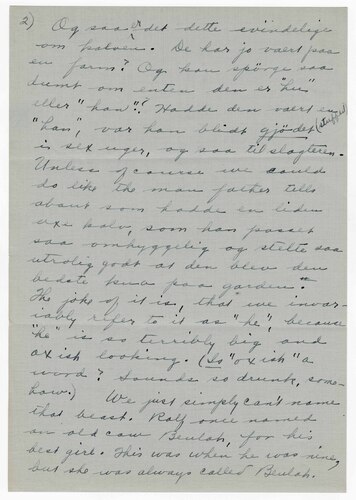 2) Og saa er det dette evindelige
om kalven. De har jo vaert paa
en farm? Og kan spörge saa
dumt om enten den er "hu"
eller "han"? Hadde den vaert en
"han", var han blidt gjödet (stuffed)
in sex uger, og saa til slagteren.
Unless of course we could
do like the man father tells
about som hadde en liden
oxe kalv, som han passet
saa omhyggelig og stelte saa
utrolig godt at den blev den
bedste kua paa garden."
The joke of it is, that we invar-
iably refer to it as "he", because
"he" is so terribly big and
oxish looking. (Is "oxish" a
word? Sounds so drunk, some-
how.) We just simply can't name
that beast. Ralf once named
an old cow Beulah, for his
best girl. This was when he was nine,
but she was always called Beulah.